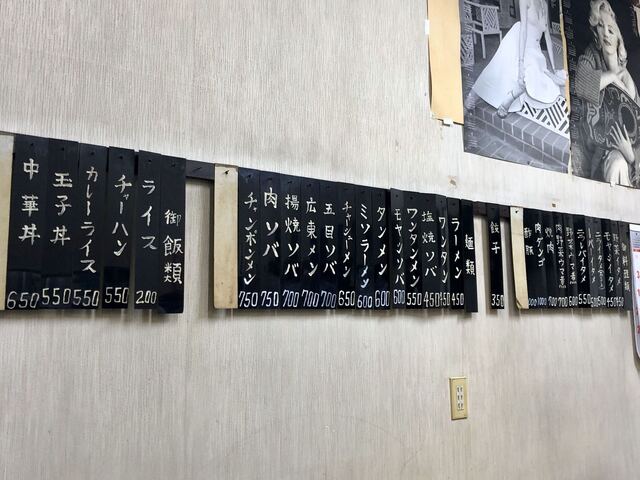 御料理類
野菜イタメ 450
モヤシイタメ 450
肉野菜ウマ煮 700
焼肉
肉ダンゴ 1000
酢豚
餃子 350
麺類
ラーメン 450
ワンタン 450
塩焼ソバ 450
ワンタンメン 550
モヤシソバ 600
タンメン 600
ミソラーメン 600
チャーシューメン 650
五目ソバ 700
広東メン 700
揚焼ソバ 700
肉ソバ 750
チャンポンメン 750
御飯類
ライス 200
チャーハン 550
カレーライス 550
玉子丼 550
中華丼 650